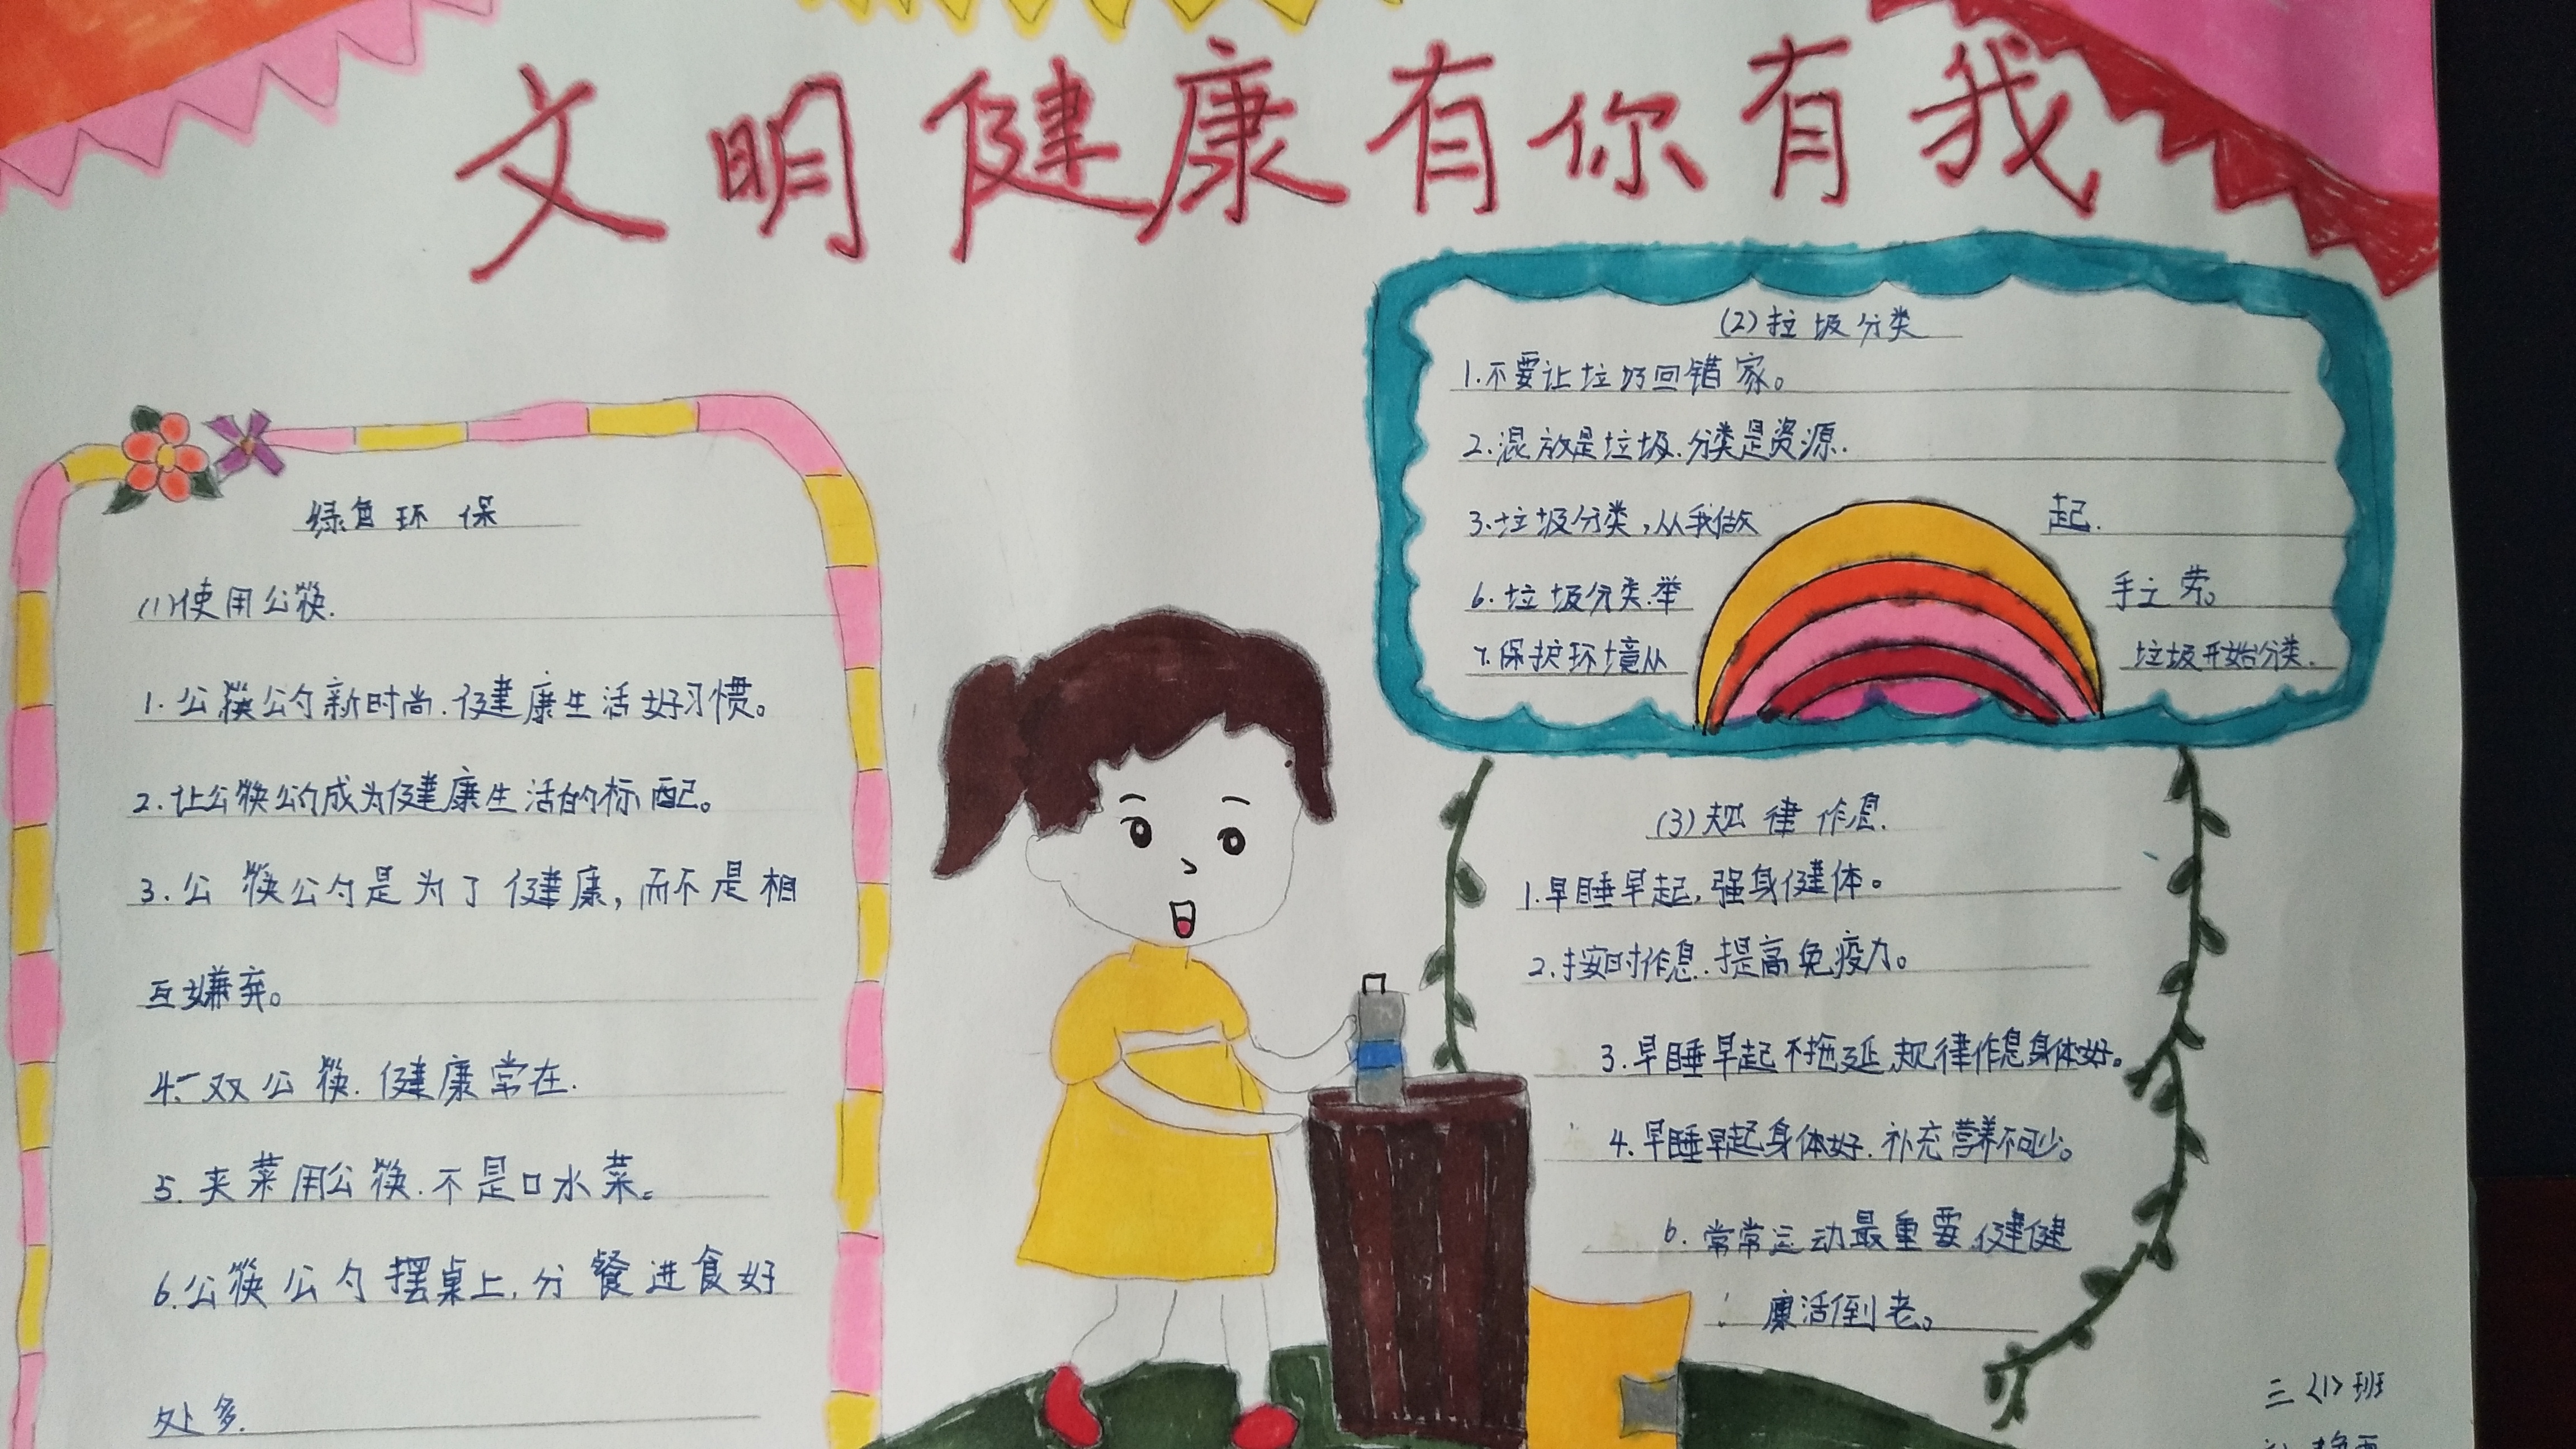 文明健康有你有我
绿色环保
(1)使用公筷.
1.公筷公勺新时尚.健康生活好习惯。
2.让公筷公勺成为健康生活的标配。
3.公筷公勺是为了健康,而不是相
互嫌弃。
4.一双公筷.健康常在.
5.夹菜用公筷.不是口水菜。
6.公筷公勺摆桌上.分餐进食好
处多.
(2)垃圾分类
1.不要让垃圾回错家。
2.混放是垃圾.分类是资源.
3.垃圾分类,从我做起.
6.垃圾分类.举手之劳。
7.保护环境从垃圾开始分类.
(3)规律作息.
1.早睡早起,强身健体。
2.按时作息.提高免疫力。
3.早睡早起不拖延,规律作息身体好。
4.早睡早起身体好.补充营养不可少。
6.常常运动最重要.健健
康活到老。
三〈1〉班